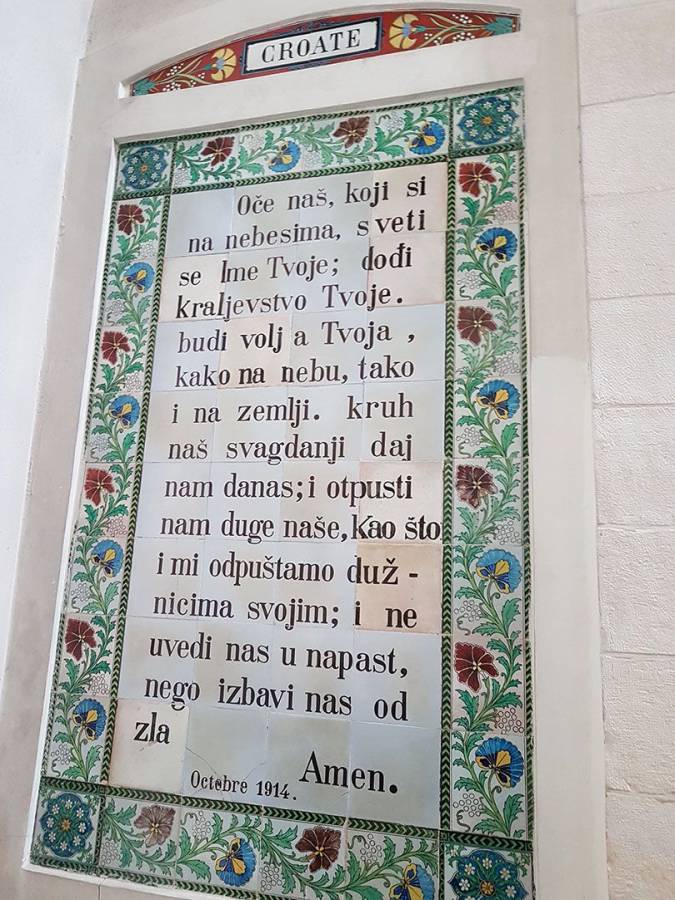 CROATE
Oče naš, koji si
na nebesima, sveti
se Ime Tvoje; dođi
kraljevstvo Tvoje.
budi volja Tvoja ,
kako na nebu, tako
i na zemlji. kruh
naš svagdanji daj
nam danas; i otpusti
nam duge naše, kao što
i mi odpuštamo duž-
nicima svojim; i ne
uvedi nas u napast,
nego izbavi nas od
zla
Amen.
Octobre 1914.